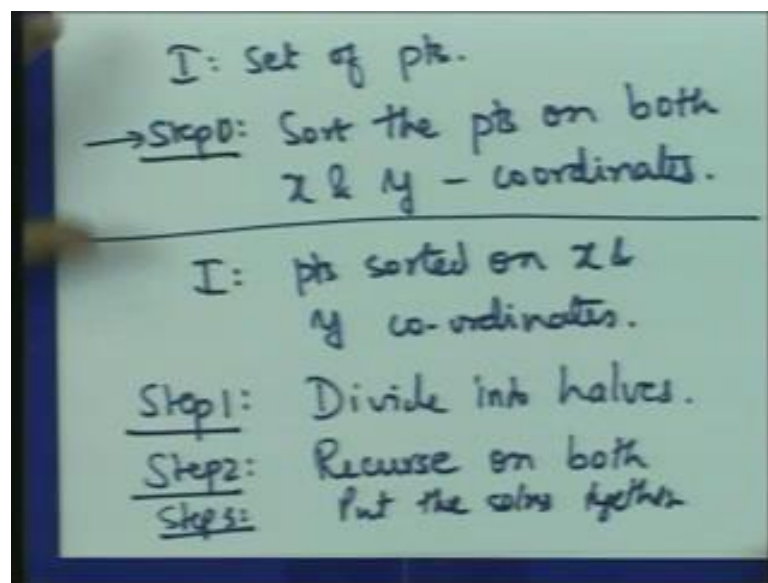 I: Set of pts.
→Step0: Sort the pts on both
x & y - coordinates.
I: pts sorted on x &
y co-ordinates.
Step1: Divide into halves.
Step2: Recurse on both
Step3: Put the solns together